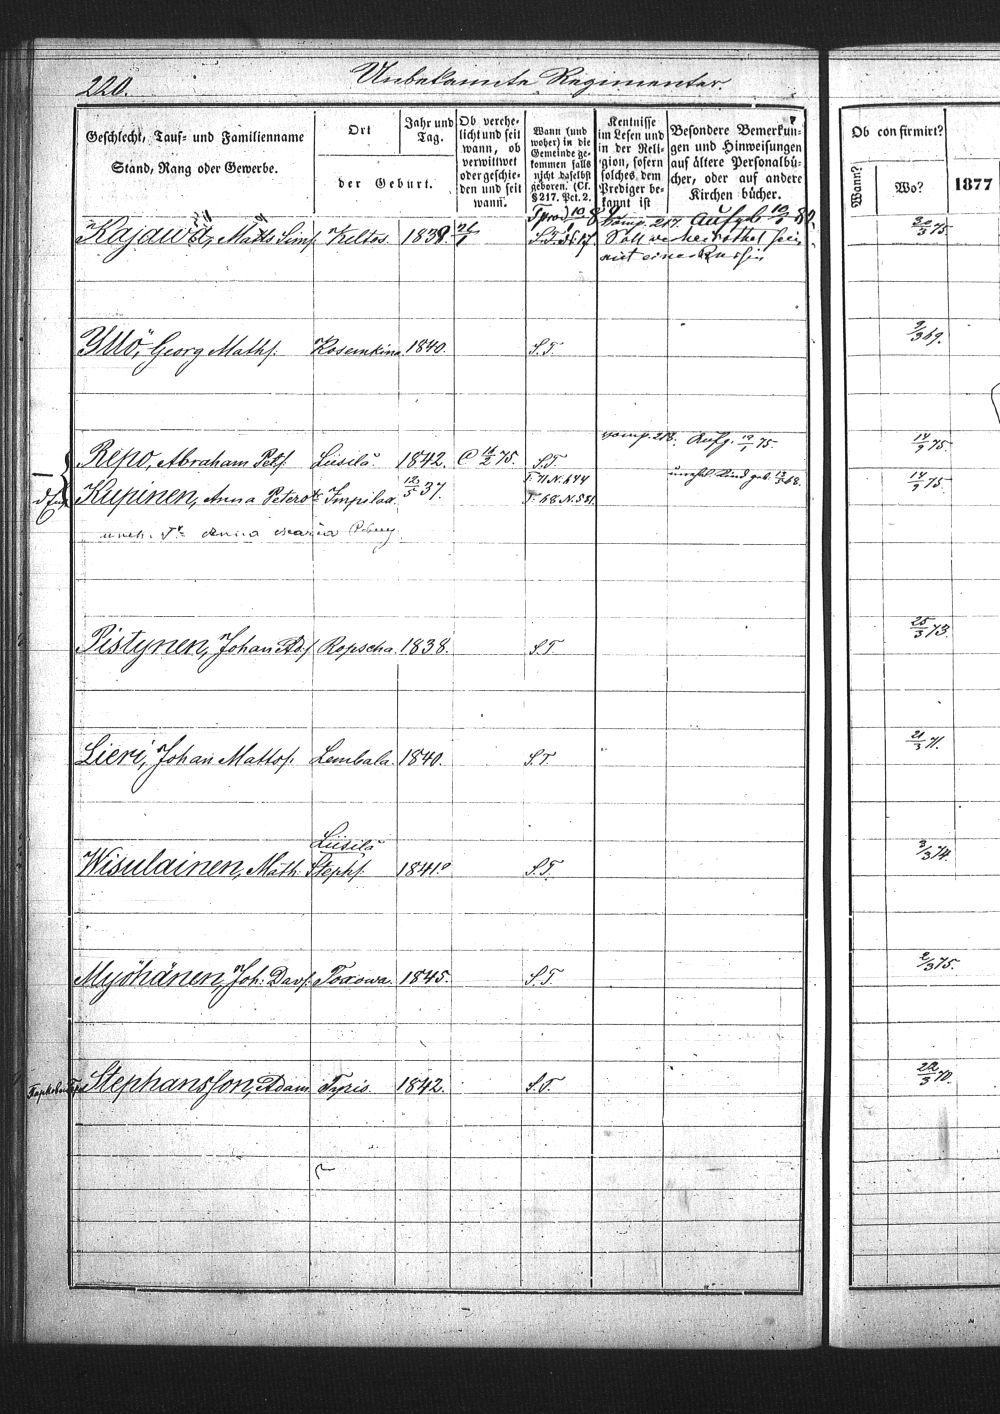 220.
Unbekannte Regimenter.
Geschlecht, Tauf- und Familienname
Stand, Rang oder Gewerbe.
Ort
der Geburt.
Jahr und
Tag.
Ob verehe-
licht und seit
wann, ob
verwittwet
oder geschie-
den und seit
wann.
Wann (und
woher) in die
Gemeinde ge-
kommen falls
nicht daselbst
geboren. (Cf.
§ 217. Pct. 2.
Kentnisse
im Lesen und
in der Reli-
gion, sofern
solches dem
Prediger be-
kannt ist
Besondere Bemerkun-
gen und Hinweisungen
auf ältere Personalbü-
cher, oder auf andere
Kirchen bücher.
Ob confirmirt?
Wann?
Wo?
1877
comp. 217. Aufgeb
Matts Sims. Keltos. 1839. S.T. Soll verheirathet sein 30/3 75.
mit einer Russin
Yllö, Georg Maths. Kosemkina 1840. S.T. 9/3 69.
comp. 218. Aufg. 19/1 75
Repo, Abraham Pets. Liisilä 1842. C 16/2 75. S.T. 14/9 75.
T. 71 N. 644 unehl. Kind geb.
Kupinen, Anna Peters Impilax. 12/5 37. T. 68. N. 551. 14/9 75.
Anna Maria
Pistynen, Johan Ad. Ropscha. 1838. S.T 25/3 73.
Lieri, Johan Mattos. Lembala. 1840. S.T. 21/3 71.
Liisilä
Wisulainen, Math. Stephs. 1841. S.T. 3/3 74.
Myöhänen, Joh. Davs. Toxowa. 1845. S.T. 2/3 75.
Stephansson, Adam Tyris. 1842. S.T. 22/3 70.